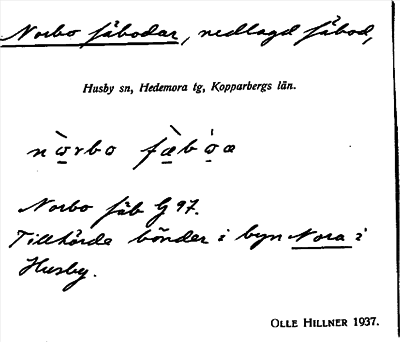 Norbo fäbodar, nedlagd fäbod,
Husby sn, Hedemora tg, Kopparbergs län.
Norbo fäb G 97.
Tillhörde bönder i byn Nora i
Husby.
OLLE HILLNER 1937.